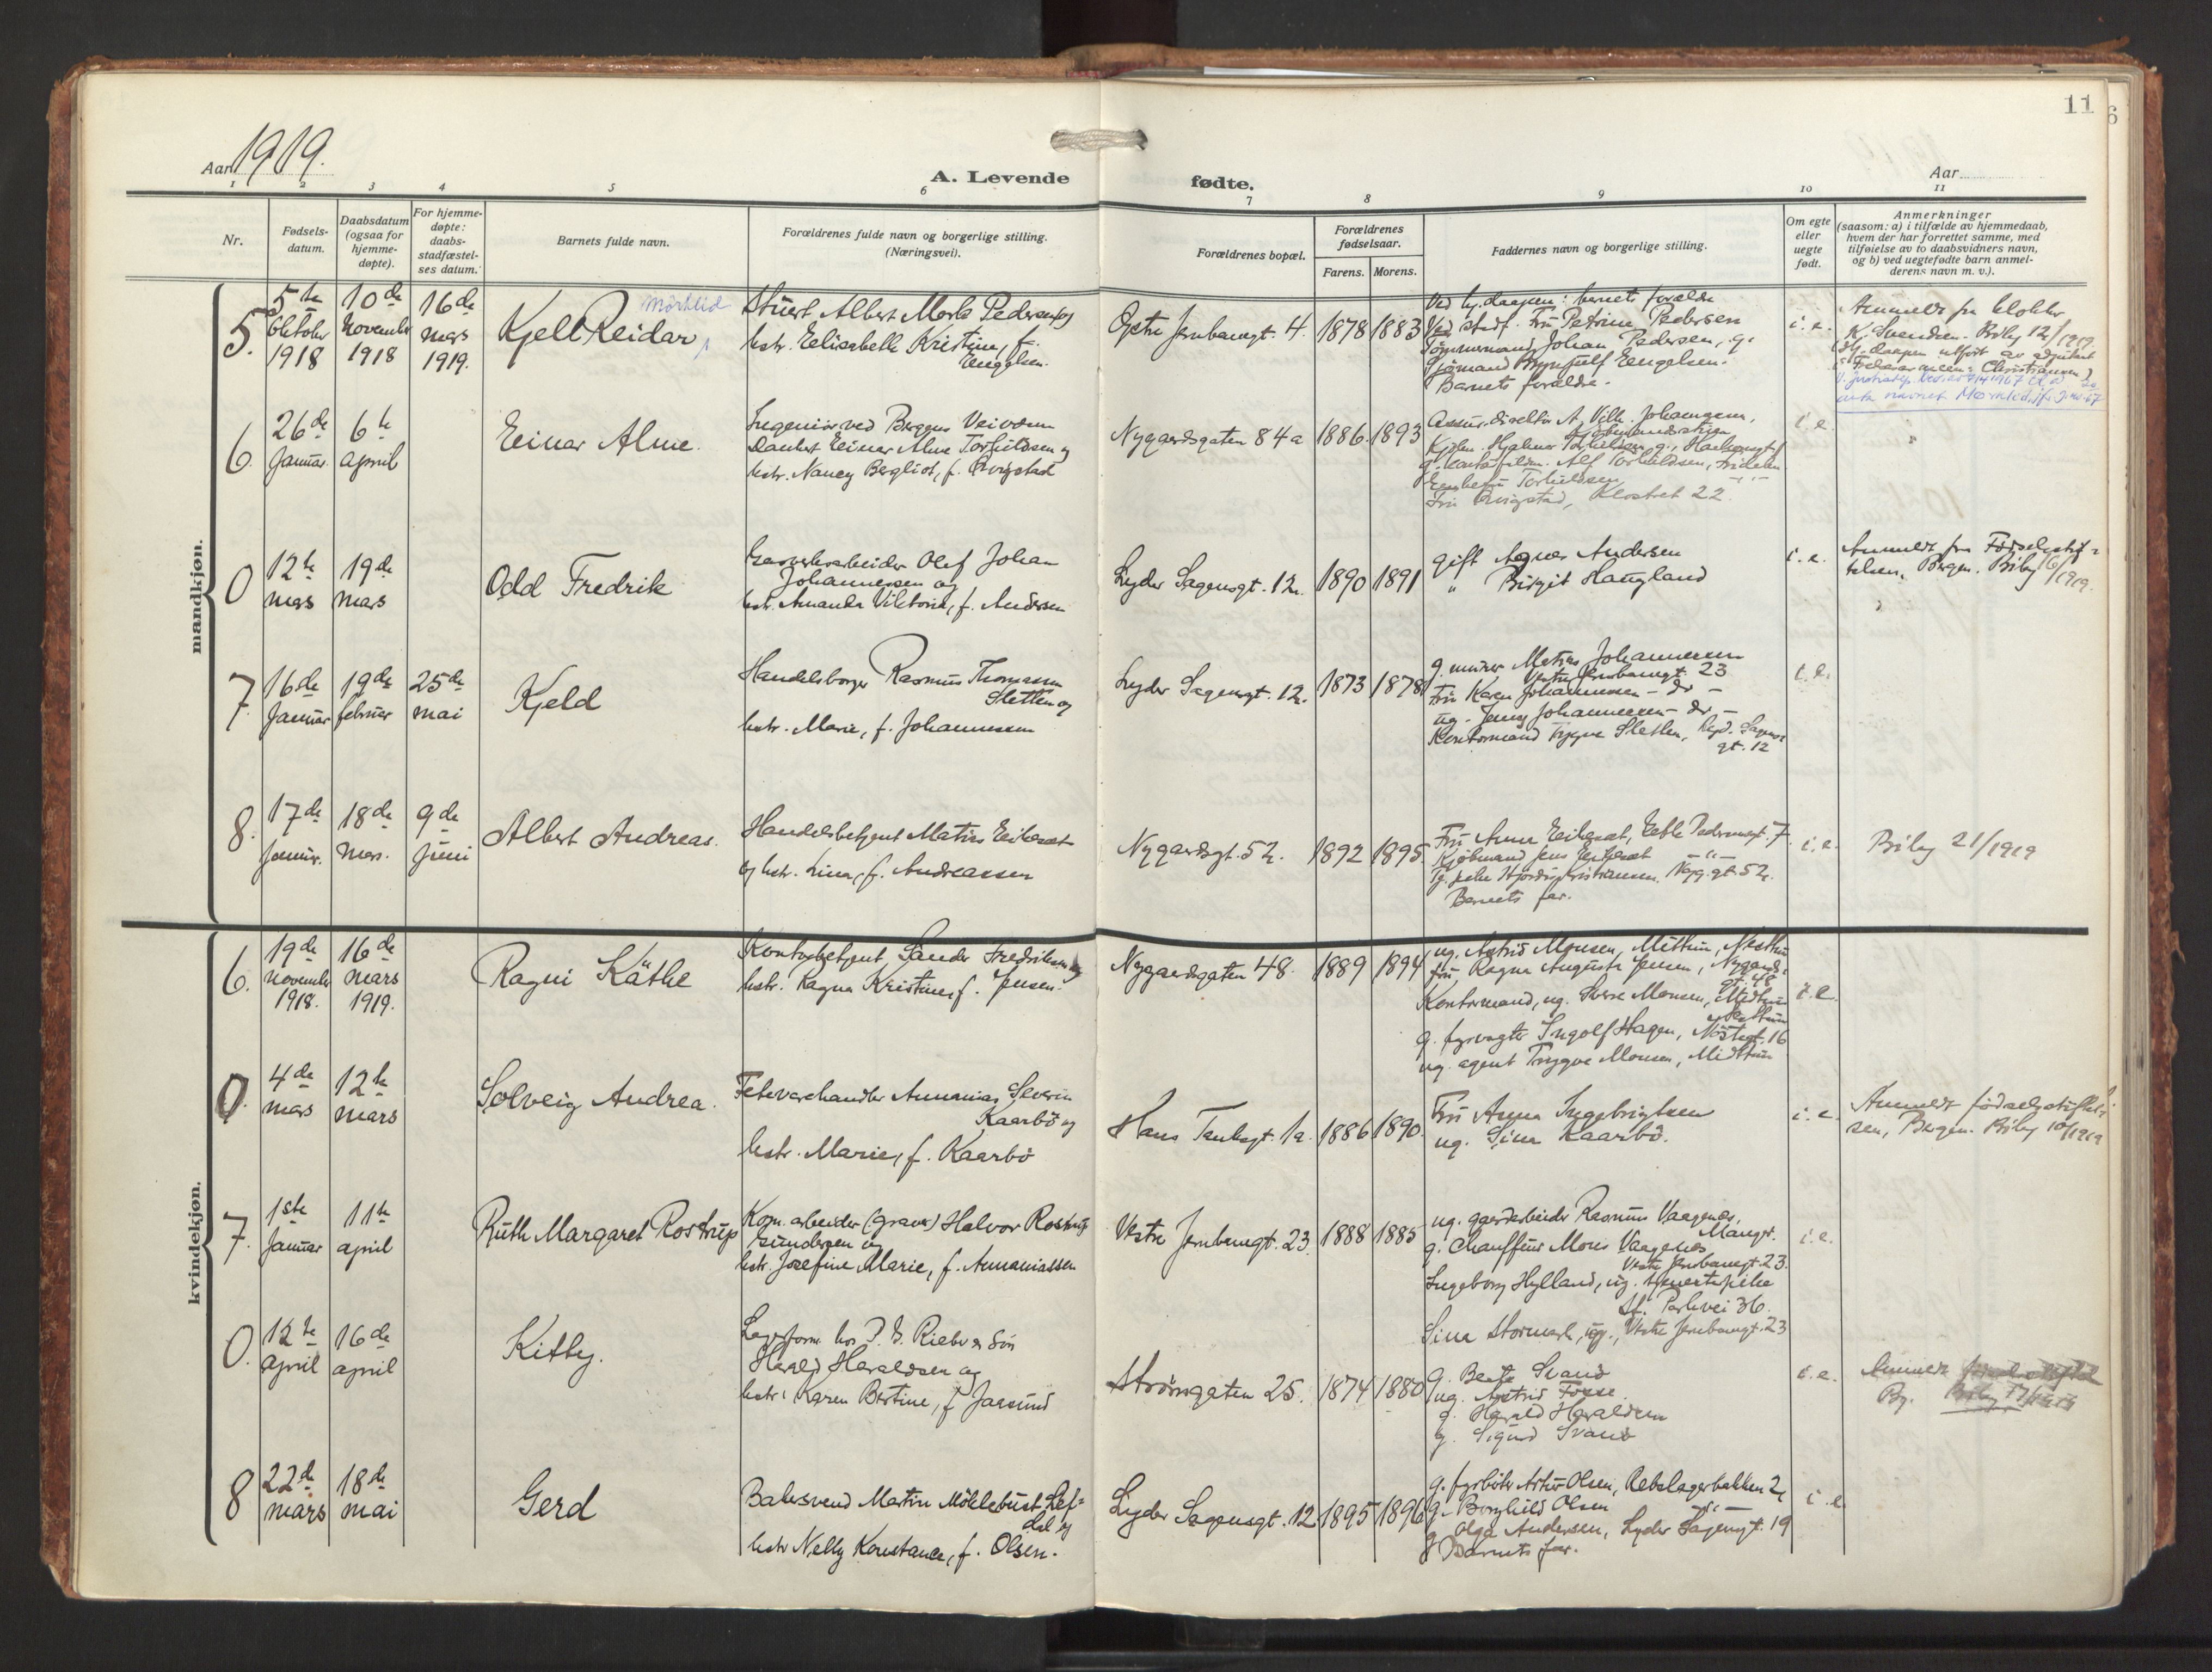 11
6
Aar 1919.
A. Levende fødte.
Aar
1 2 3 4 5 6 7 8 9 10 11
Nr.
Fødsels-
datum.
Daabsdatum
(ogsaa for
hjemme-
døpte).
For hjemme-
døpte:
daabs-
stadfæstel-
ses datum.
Barnets fulde navn.
Forældrenes fulde navn og borgerlige stilling.
(Næringsvei).
Forældrenes bopæl.
Forældrenes
fødselsaar.
Farens. Morens.
Faddernes navn og borgerlige stilling.
Om egte
eller
uegte
født.
Anmerkninger
(saasom: a) i tilfælde av hjemmedaab,
hvem der har forrettet samme, med
tilføielse av to daabsvidners navn,
og b) ved uegtefødte barn anmel-
derens navn m. v.).
mandkjøn.
5.
5te
Oktober
1918
10de
November
1918
16de
mars
1919.
Kjell Reidar
Stuert Albert Pedersen og
hstr. Elisabeth Kristine, f.
Engelsen.
Østre Jernbanegt. 4.
1878
1883
Ved hj.daapen: barnets forældre
Ved stadf. Fru Petrine Pedersen
Tømmermand Johan Pedersen, g.
Sjømand Brynjulf Engelsen.
Barnets forældre.
i. e.
Anmeldt fra klokker
K. Svendsen. Bilag 12/1919.
6.
26de
Januar.
6te
april
Einar Alme.
Ingeniør ved Bergens Veivæsen
Einar Alme Torkildsen og
hstr. Nancy Bergliot, f.
Nygaardsgaten 84a
1886.
1893
Alf Torkildsen,
Torkildsen
Fru Klostret 22.
i. e.
0
12te
mars
19de
mars
Odd Fredrik
Gasverksarbeider Olaf Johan
Johannessen og
hstr. Amanda Viktoria, f. Andersen
Lyder Sagensgt. 12.
1890
1891
gift Agnes Andersen
" Birgit Haugland
i. e.
Anmeldt fra Fødselsstif-
telsen, Bergen. Bilag 16/1919.
7.
16de
Januar
19de
februar
25de
mai
Kjeld
Handelsborger Rasmus Thomassen
Sletten og
hstr. Marie, f. Johannessen
Lyder Sagensgt. 12.
1873
1878
g. murer Johannessen
Vestre Jernbanegt. 23
Fru Karen Johannessen - do -
ug. Jenny Johannessen - do -
Kontormand Trygve Sletten, Lyd. Sagens
gt. 12
i. e.
8.
17de
Januar.
18de
Mars.
9de
Juni
Albert Andreas.
Handelsbetjent Matias
og hstr. Lina, f. Andreassen
Nygaardsgt. 52.
1892
1895
Fru Anna
Kjøbmand Jens
Kristiansen. Nyg.gt. 52.
Barnets far.
i. e.
Bilag 21/1919
kvindekjøn.
6.
19de
november
1918.
16de
mars
1919.
Ragni Käthe
Kontorbetjent Sander Fredriksen og
hstr. Ragna Kristine, f. Jensen.
Nygaardsgaten 48.
1889
1894
ug. Astrid Monsen, Midttun, Nesttun
fru Ragna Augusta Jensen, Nygaards-
gt. 48
Kontormand, ug. Sverre Monsen, Midttun
Nesttun
g. fyrvogter Ingolf Hagen, Nøstegt. 16
ug. agent Trygve Monsen, Midttun
i. e.
0.
4de
mars
12te
mars
Solveig Andrea.
Fetevarehandler Annanias Severin
Kaarbö og
hstr. Marie, f. Kaarbö
Hans Tanksgt. 1a.
1886
1890.
Fru Anna Ingebrigtsen
ug. Sina Kaarbö.
i. e.
Anmeldt fødselsstiftel-
sen, Bergen. Bilag 10/1919
7.
1ste
Januar
11te
april
Ruth Margaret Rostrup
Kom. arbeider (graver) Halvor Rostrup
Gundersen og
hstr. Josefine Marie, f. Annaniassen
Vestre Jernbanegt. 23.
1888
1885
ug. gaardarbeider Rasmus Vaagenes,
Manger.
g. Chauffeur Mons Vaagenes
Vestre Jernbanegt. 23.
Ingeborg Hylland, ug. tjenestepike
St. Parkvei 36.
Sina Stormark, ug., Vestre Jernbanegt. 23
i. e.
0.
12te
april
16de
april
Kitty.
Lagerform. hos P. G. Rieber & Søn
Harald Haraldsen og
hstr. Karen Bertine, f. Jaasund
Strömgaten 25.
1874
1880
g. Berta Svanö
ug. Astrid Fosse.
g. Harald Haraldsen
g. Sigurd Svanö
i. e.
Anmeldt
8
22de
mars
18de
mai
Gerd
Bakersvend Martin Möklebust Lef-
dal og
hstr Nelly Konstance, f. Olsen.
Lyder Sagensgt. 12
1895
1896
g. fyrbøter Artur Olsen, Rebslagerbakken 2
g. Borghild Olsen
g. Olga Andersen, Lyder Sagensgt. 19
Barnets far.
i. e.